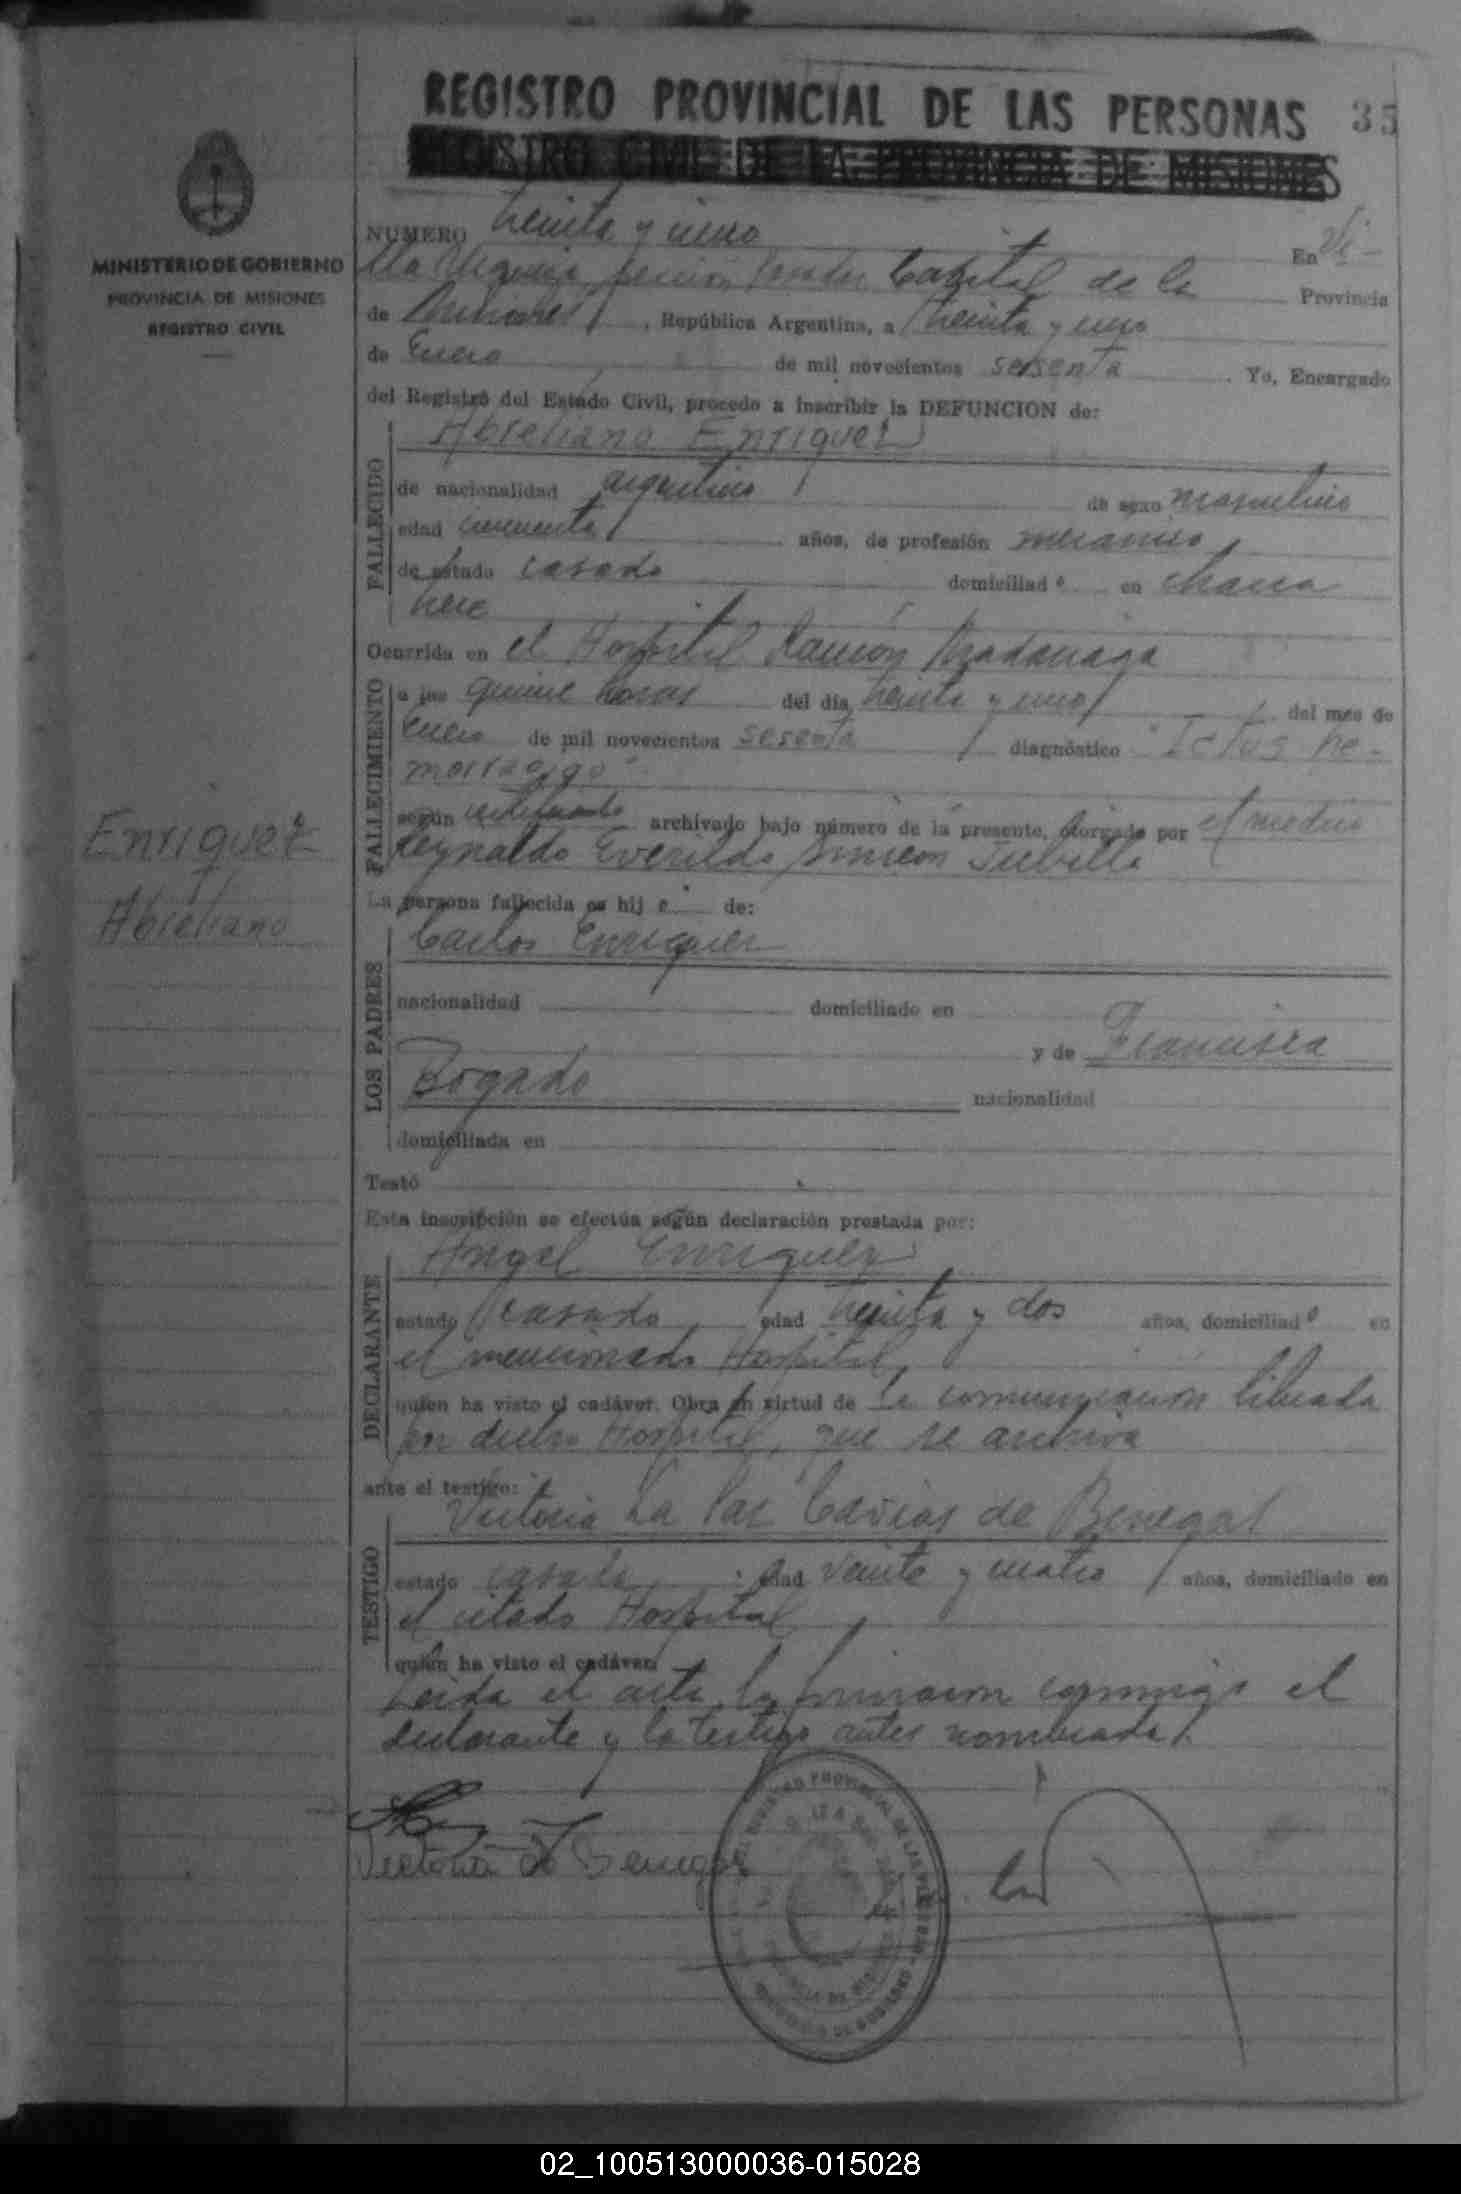 REGISTRO PROVINCIAL DE LAS PERSONAS 35
REGISTRO CIVIL DE LA PROVINCIA DE MISIONES
MINISTERIO DE GOBIERNO
PROVINCIA DE MISIONES
REGISTRO CIVIL
NUMERO treinta y uno En Vi-
lla Urquiza, Capital de la Provincia
de Misiones, República Argentina, a treinta y uno
de Enero de mil novecientos sesenta. Yo, Encargado
del Registro del Estado Civil, procedo a inscribir la DEFUNCION de:
Abreliano Enriquez
FALLECIDO
de nacionalidad argentino de sexo masculino
edad cincuenta años, de profesión mecánico
de estado casado domiciliado en chacra
trece
Ocurrida en el Hospital Ramón Madariaga
FALLECIMIENTO
a las quince horas del día treinta y uno del mes de
Enero de mil novecientos sesenta diagnóstico "Ictus he-
morragigo"
según certificado archivado bajo número de la presente, otorgado por el médico
Reynaldo Everildo Simeon
Enriquez
Abreliano
La persona fallecida es hijo de:
LOS PADRES
Carlos Enriquez
nacionalidad domiciliado en
y de Francisca
Bogado nacionalidad
domiciliada en
Testó
Esta inscripción se efectúa según declaración prestada por:
DECLARANTE
Angel Enriquez
estado casado edad treinta y dos años, domiciliado en
el mencionado Hospital,
quien ha visto el cadáver. Obra en virtud de la comunicación librada
por dicho Hospital, que se archiva
ante el testigo:
TESTIGO
Victoria La Paz de Benegas
estado casada edad veinte y cuatro años, domiciliado en
el citado Hospital
quien ha visto el cadáver.
Leida el acta, la firmaron conmigo el
declarante y la testigo antes nombrada.
Victoria de Benegas
02_100513000036-015028